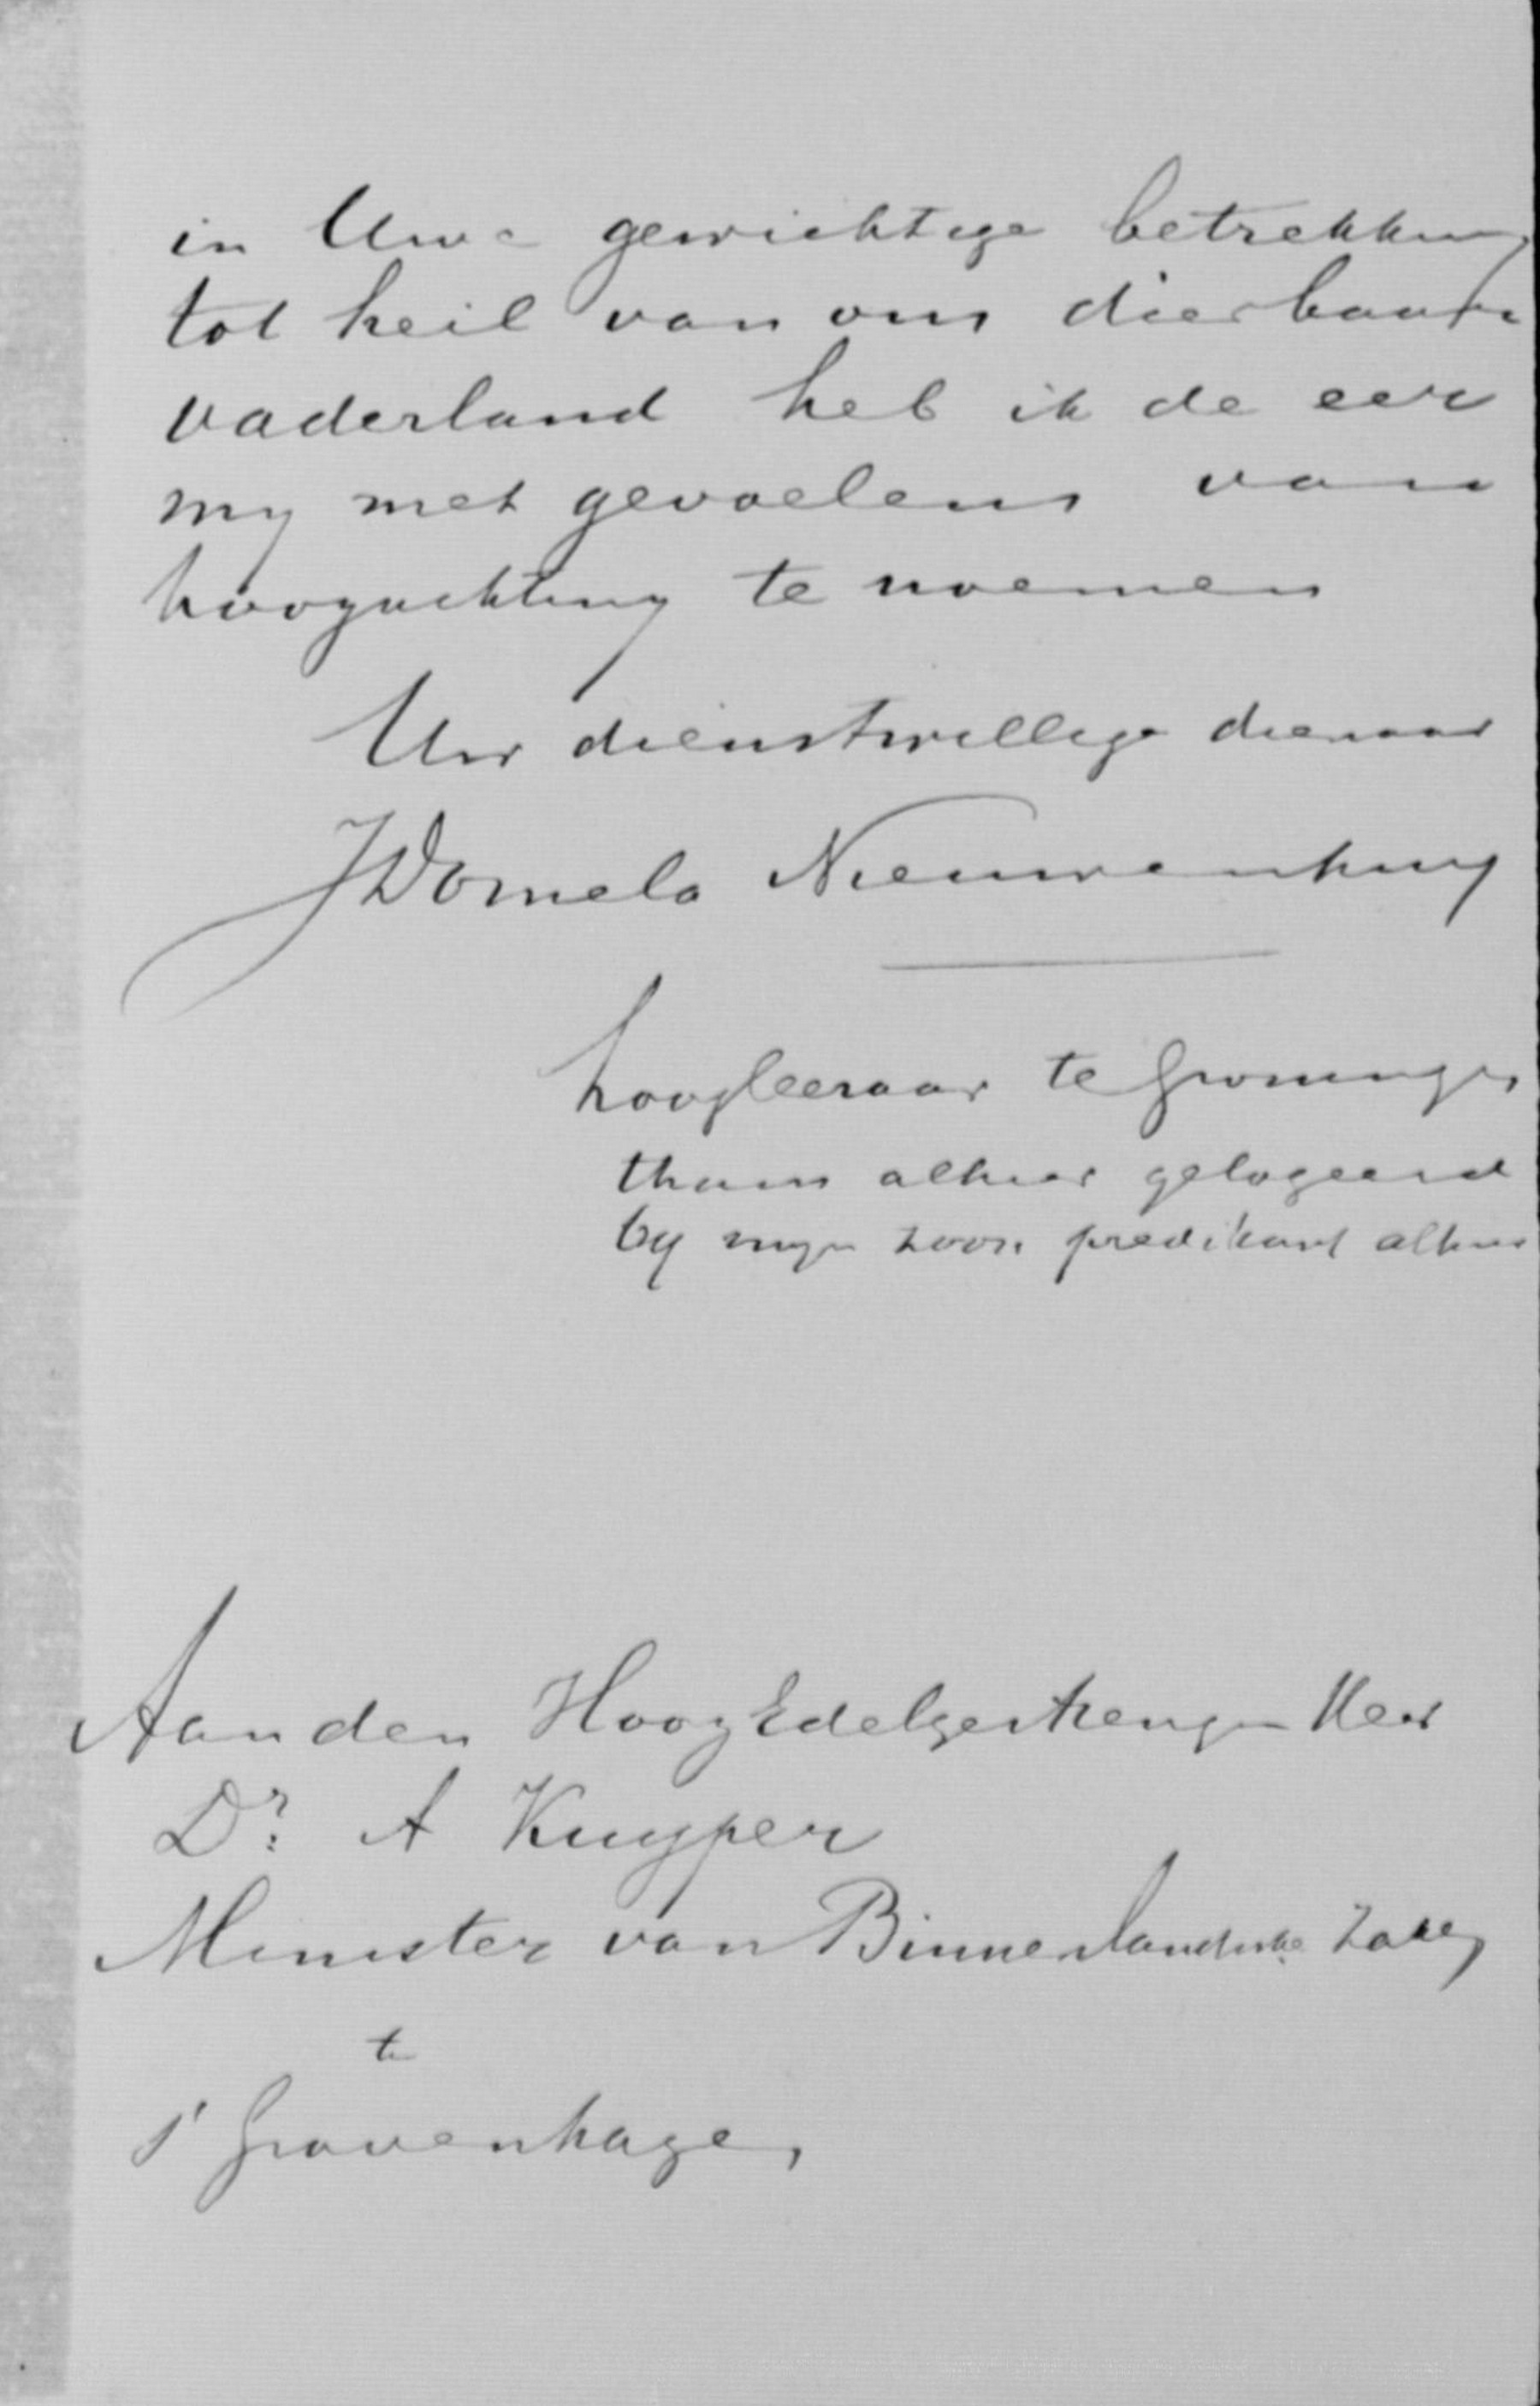 in Uwe gewichtige betrekking
tot heil van ons dierbaar
vaderland heb ik de eer
my met gevoelens van
hoogachting te noemen
Uw dienstwillige dienaar
J Domela Nieuwenhuis
hoogleeraar te Groningen
thans alhier gelogeerd
by myn zoon predikant alhier
Aan den HoogEdelgestrengen Heer
Dr. A Kuyper
Minister van Binnenlandsche Zaken
te
s' Gravenhage,